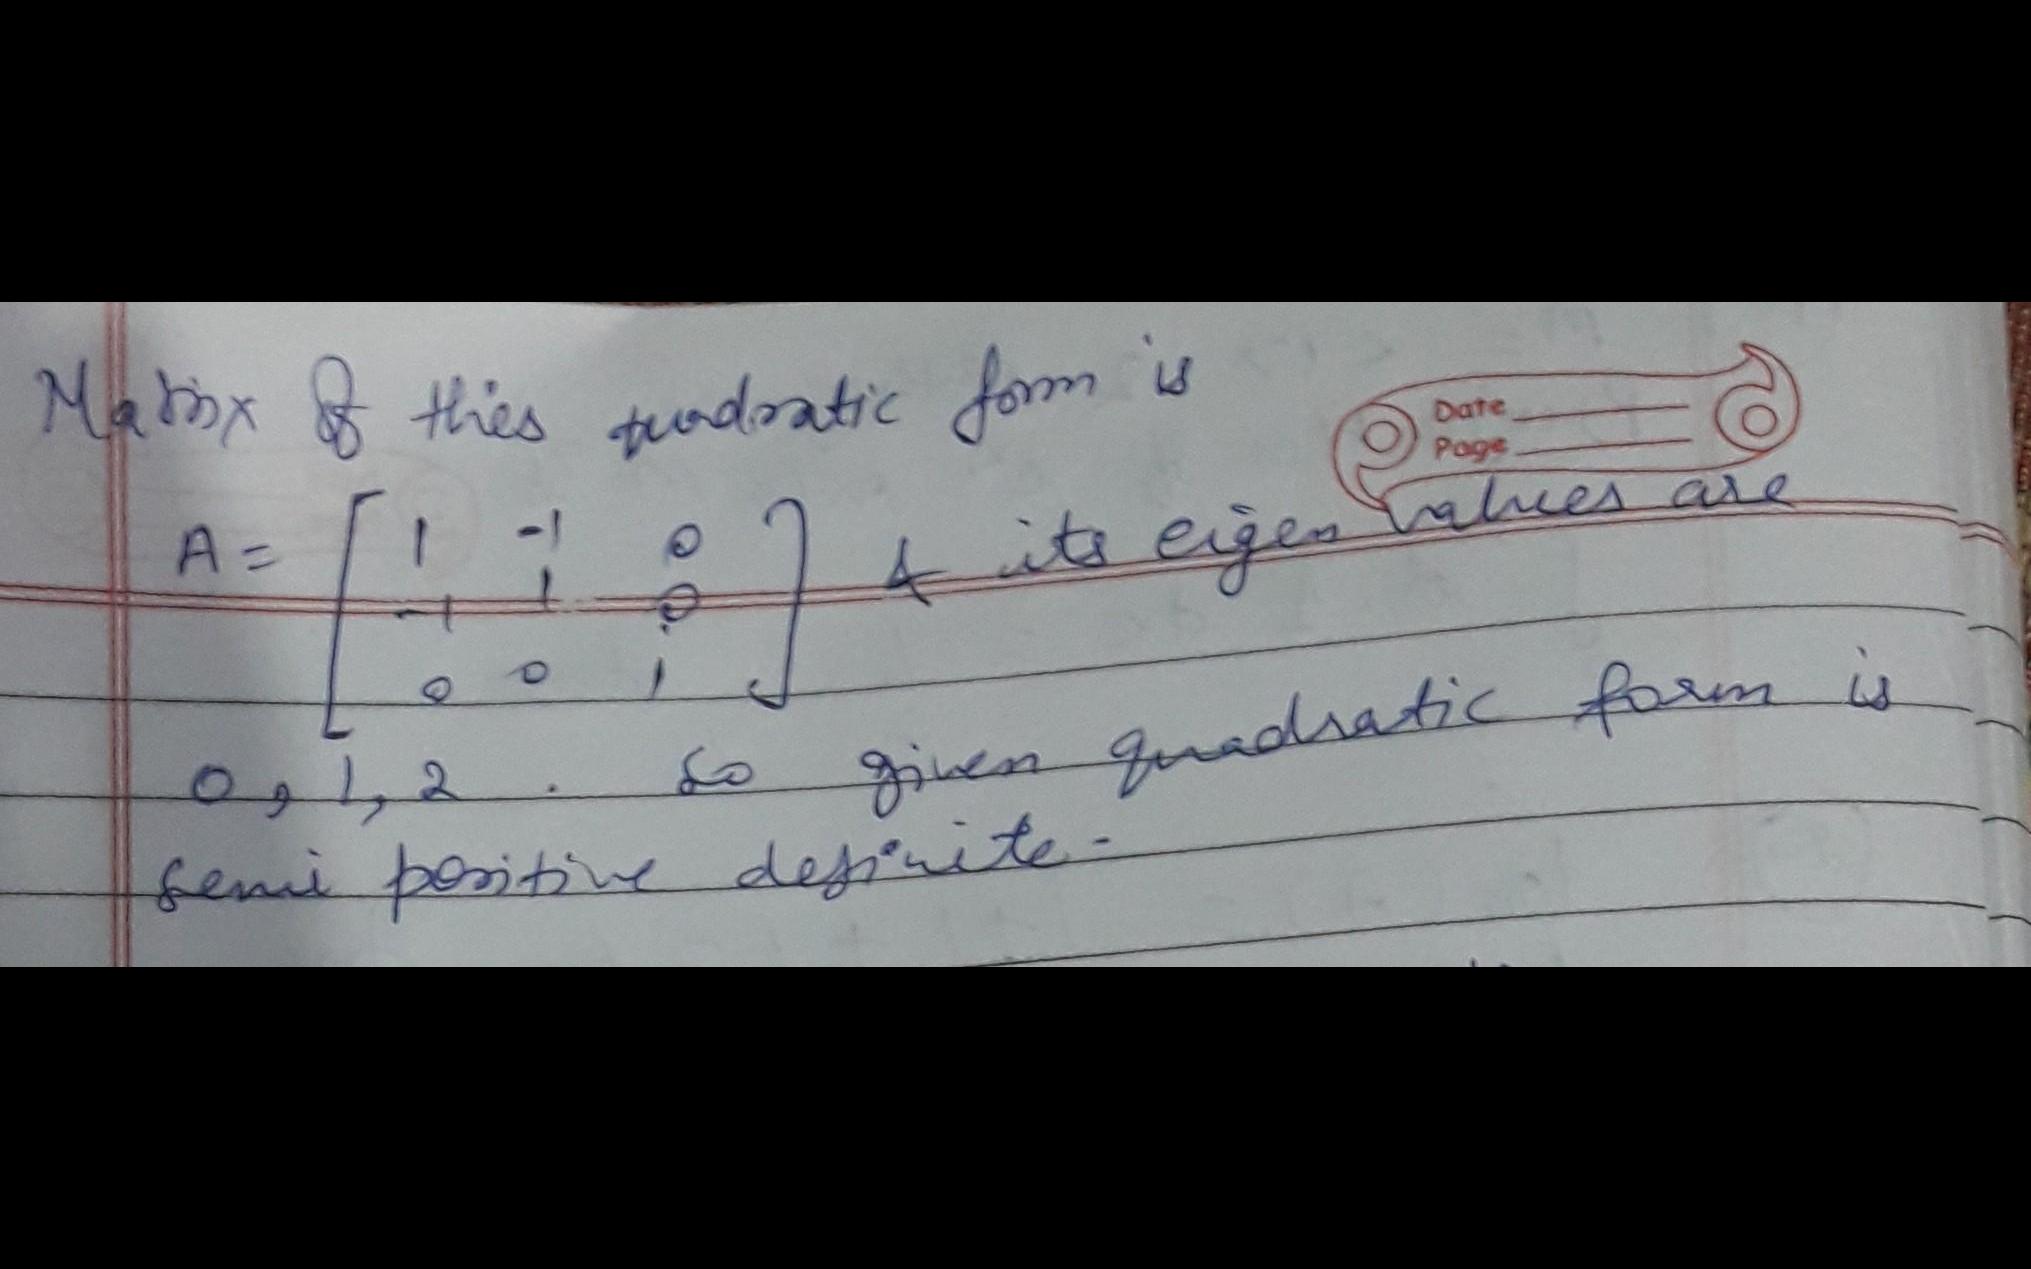 Matrix of this quadratic form is
Date
Page
A = [ 1 -1 0
-1 1 0
0 0 1 ] & its eigen values are
0, 1, 2 . So given quadratic form is
semi positive definite.